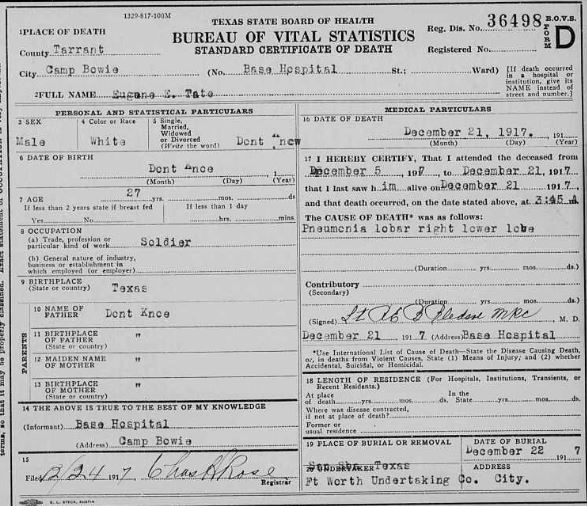 1329-817-100M
TEXAS STATE BOARD OF HEALTH
BUREAU OF VITAL STATISTICS
STANDARD CERTIFICATE OF DEATH
Reg. Dis. No. 36498
B.O.V.S.
FORM D
Registered No.
1PLACE OF DEATH
County Tarrant
City Camp Bowie (No. Base Hospital St.; Ward)
[If death occurred in a hospital or institution, give its NAME instead of street and number.]
2FULL NAME Eugene E. Tate
PERSONAL AND STATISTICAL PARTICULARS
3 SEX
Male
4 Color or Race
White
5 Single, Married, Widowed or Divorced (Write the word)
Dont
6 DATE OF BIRTH
Dont Knoe
(Month) (Day) (Year)
7 AGE 27 yrs. mos. ds
If less than 2 years state if breast fed
Yes No
If less than 1 day
hrs. mins.
8 OCCUPATION
(a) Trade, profession or particular kind of work Soldier
(b) General nature of industry, business or establishment in which employed (or employer)
9 BIRTHPLACE
(State or country) Texas
PARENTS
10 NAME OF FATHER Dont Knoe
11 BIRTHPLACE OF FATHER (State or country) "
12 MAIDEN NAME OF MOTHER "
13 BIRTHPLACE OF MOTHER (State or country) "
14 THE ABOVE IS TRUE TO THE BEST OF MY KNOWLEDGE
(Informant) Base Hospital
(Address) Camp Bowie
15
Filed 12/24 1917 Chas H Rose
Registrar
MEDICAL PARTICULARS
16 DATE OF DEATH
December 21, 1917. 191
(Month) (Day) (Year)
17 I HEREBY CERTIFY, That I attended the deceased from
December 5 1917, to December 21, 1917
that I last saw h im alive on December 21 1917
and that death occurred, on the date stated above, at 3:45 A
The CAUSE OF DEATH* was as follows:
Pneumonia lobar right lower lobe
(Duration) yrs. mos. ds.
Contributory
(Secondary)
(Duration) yrs. mos. ds.
(Signed) M. D.
December 21 1917 (Address) Base Hospital
*Use International List of Cause of Death—State the Disease Causing Death, or, in deaths from Violent Causes, State (1) Means of Injury; and (2) whether Accidental, Suicidal, or Homicidal.
18 LENGTH OF RESIDENCE (For Hospitals, Institutions, Transients, or Recent Residents.)
At place of death yrs. mos. ds. In the State yrs. mos. ds.
Where was disease contracted, if not at place of death?
Former or usual residence
19 PLACE OF BURIAL OR REMOVAL
Texas
DATE OF BURIAL
December 22 1917
20 UNDERTAKER
Ft Worth Undertaking Co.
ADDRESS
City.